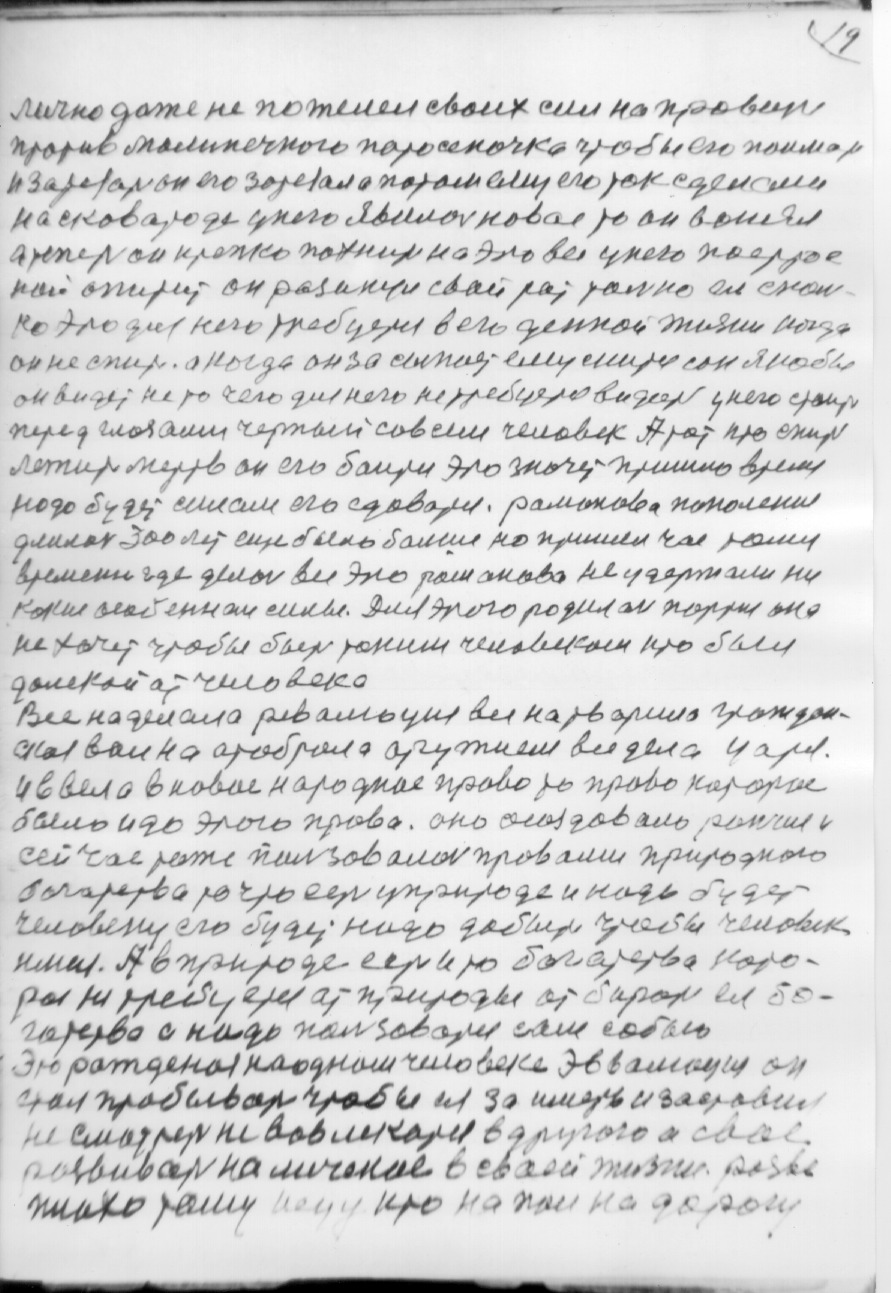 19
лично даже не пожелел своих сил на проверит
против маличечного поросеночка чтобы его поимат
и зарезат он его зарезала потом ему его так сделали
на сковароде у него явилос новае то он вошел
а тепер он крепко похнит на это все у него
ной опирит он разинул свой рот толко ел скол-
ко это для него требуется в его денной жизни когда
он не спит. а когда он засыпает ему снится сон якобы
он видет не то чего для него не требуется видет у него стоит
перед глазами черный совсем человек А тот кто спит
лежит мертв он его боится это значет пришло время
надо будет силам его сдоватся. раманова поколение
длилос 300 лет еще было болше но пришел час тому
времени где делос все это раманова не удержали ни
какие особеннаи силы. Для этого родилас партия она
не хочет чтобы быт таким человеком кто был
далекой от человека
Все наделала революция все натварила граждан-
ская вайна отобрала оружием все дела царя.
и ввела в новое народное право то право каторае
было и до этого права. оно создовало ранше и
сейчас тоже ползовалос правами природного
богатства то что ест у природе и надо будет
человеку его будет надо добыт чтобы человек
имел. А в природе ест и то богатства кото-
рое не требуется от природы отбират ея бо-
гатства а надо ползоватся сам собою
Это рождения на одном человеке Эвалюция он
стал пробыват чтобы ея заимет и заставил
не смотрет не вовлекатся в другого а свае
развиват на личеное в своей жизни. разве
плохо тому кто напал на дорогу